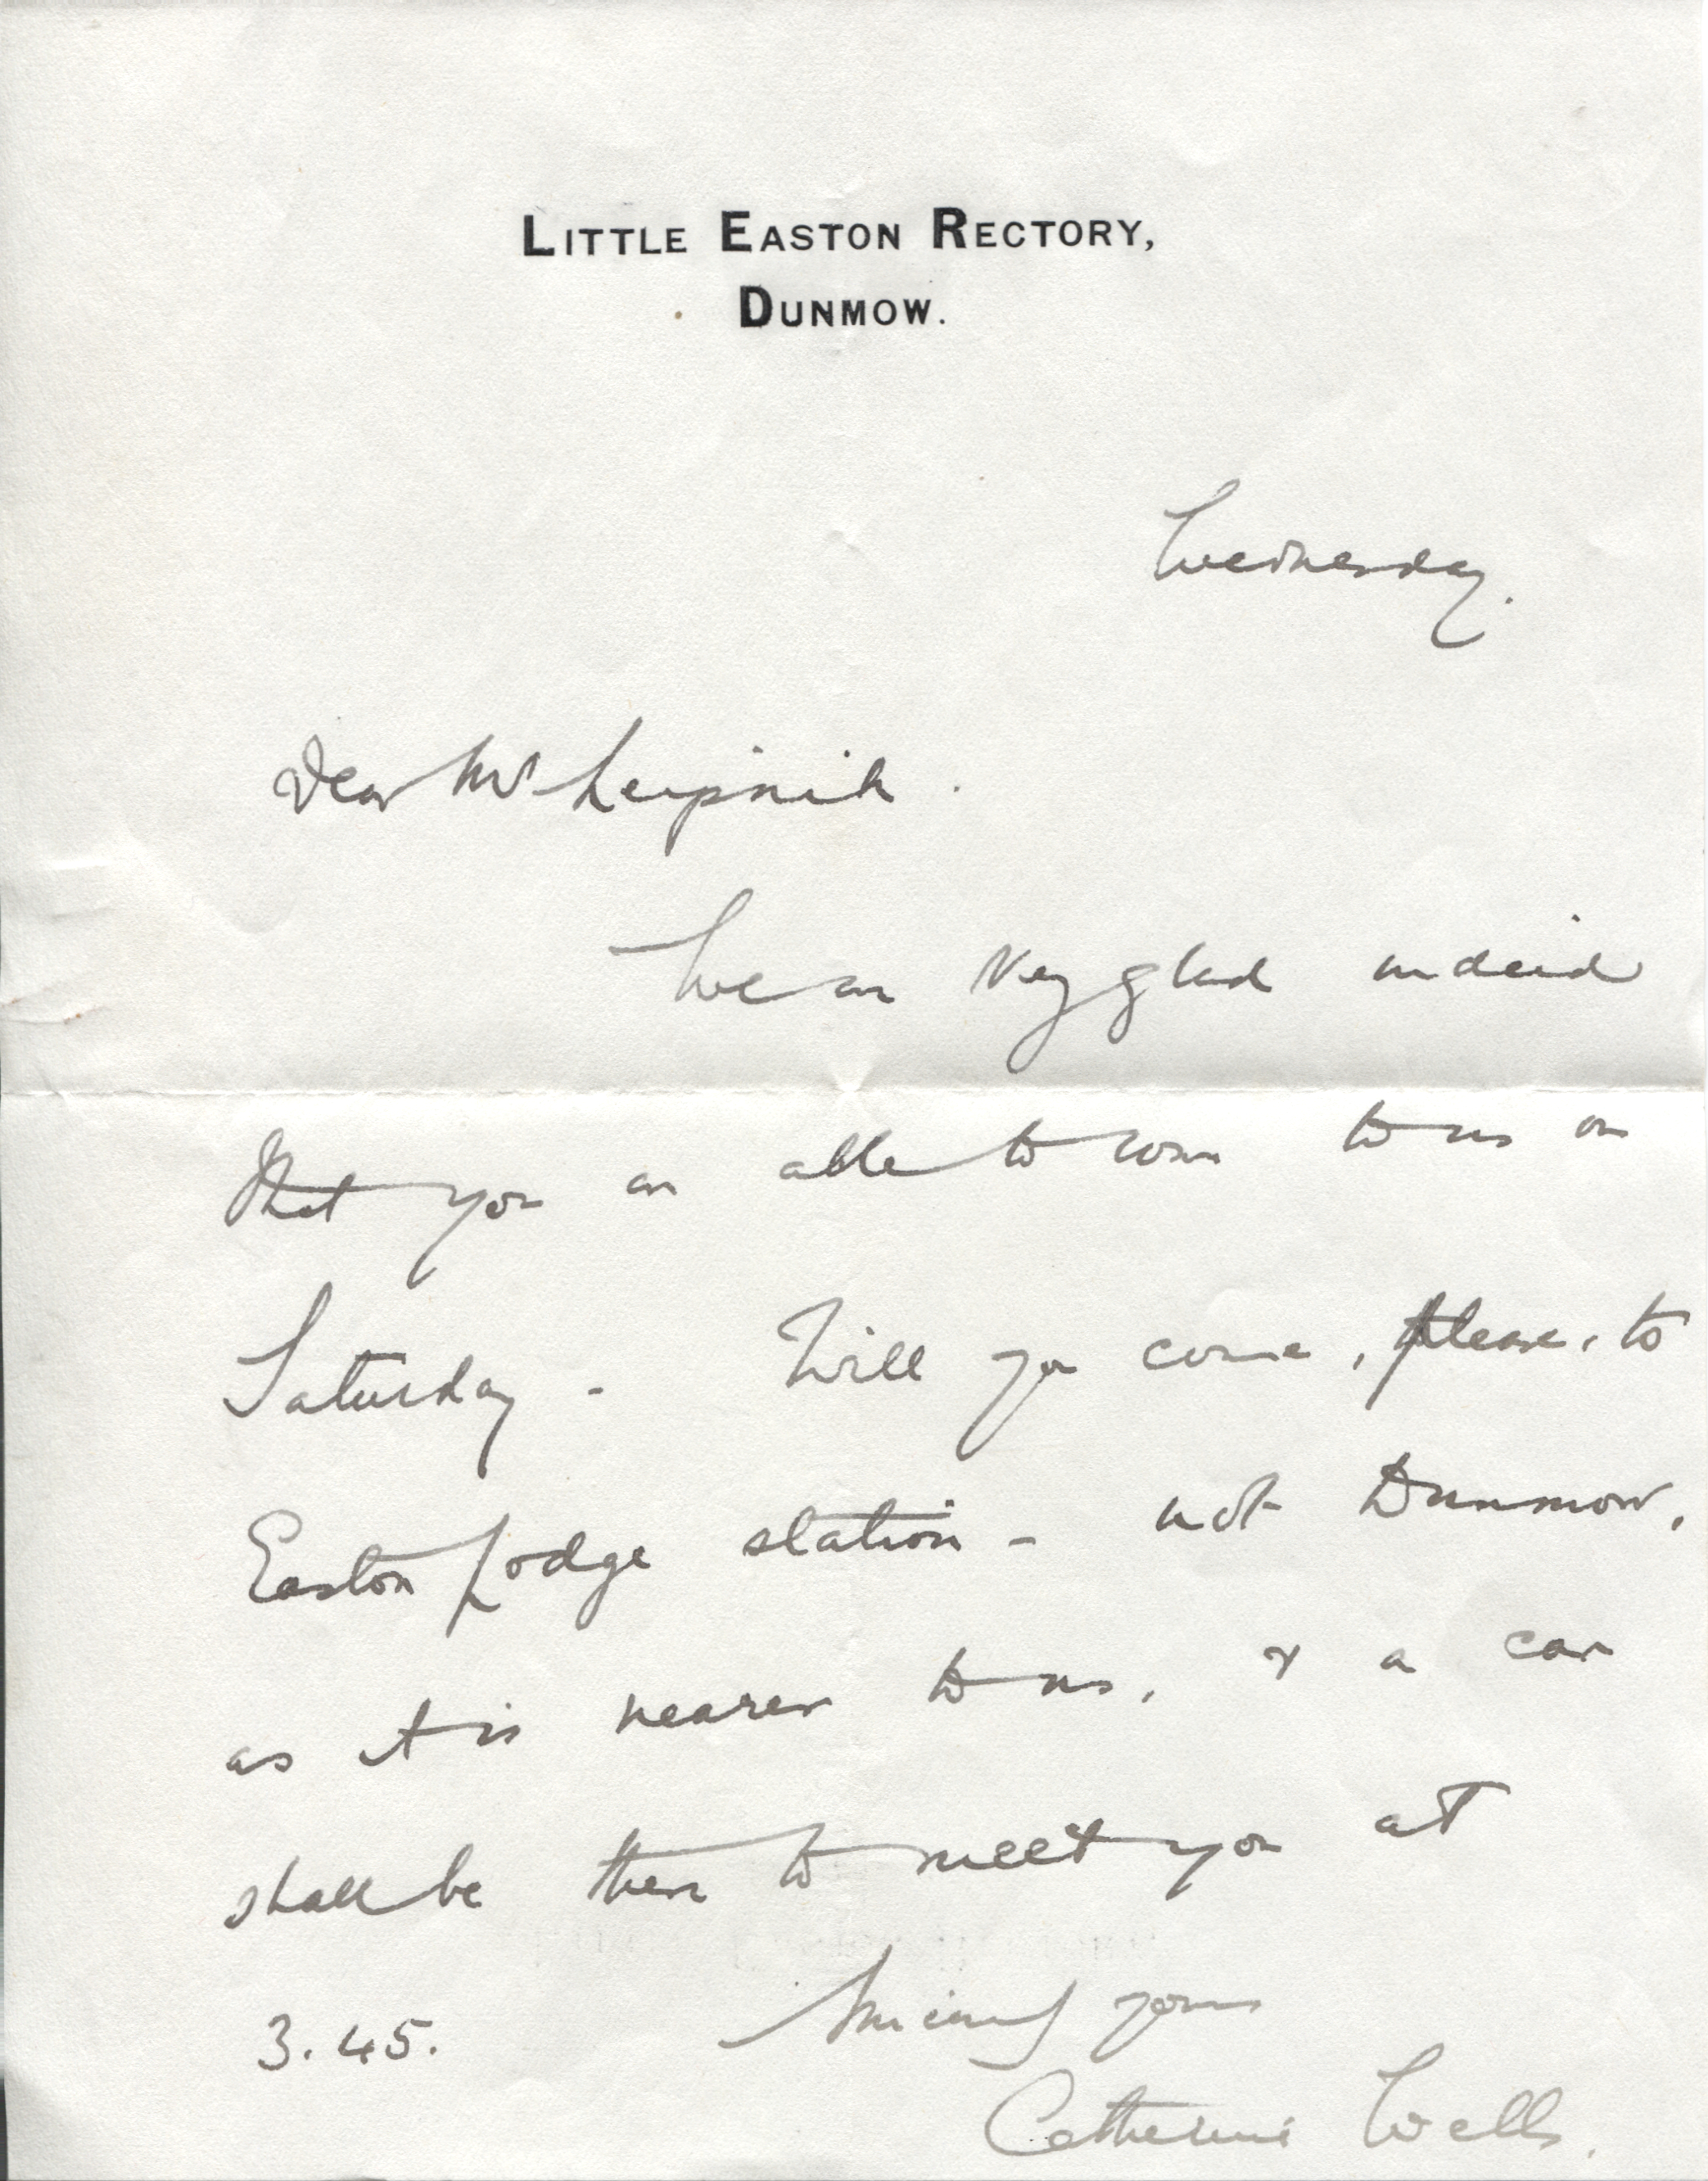 LITTLE EASTON RECTORY,
DUNMOW.
Wednesday.
Dear Mr Leipnik.
We are very glad indeed
that you are able to come to us on
Saturday - Will you come, please, to
Easton Lodge station - not Dunmow,
as it is nearer to us, & a car
shall be there to meet you at
3.45. Sincerely yours
Catherine Wells.